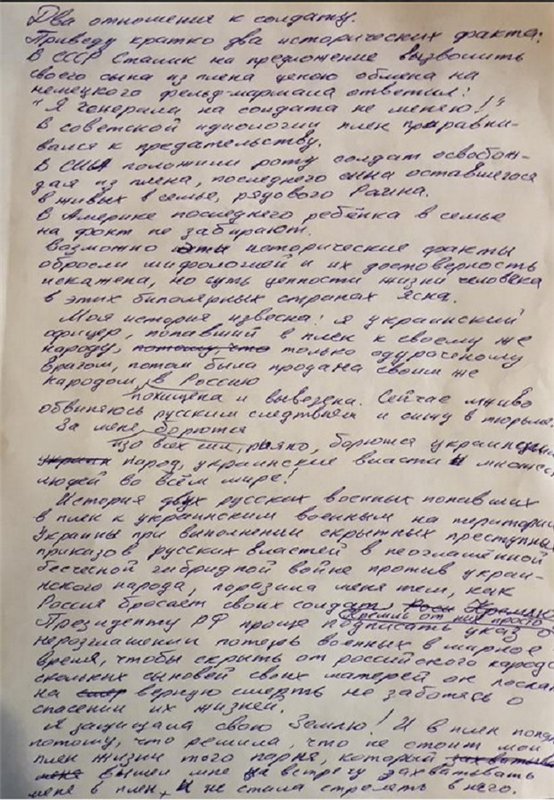 Два отношения к солдату.
Приведу кратко два исторических факта:
В СССР Сталин на предложение вызволить
своего сына из плена ценою обмена на
немецкого фельд-маршала ответил:
"Я генерала на солдата не меняю!"
В советской идиологии плен приравни-
вался к предательству.
В США положили роту солдат освобож-
дая из плена, последнего сына оставшегося
в живых в семье, рядового Раина.
В Америке последнего ребёнка в семье
на фронт не забирают.
Возможно эти исторические факты
обросли мифологией и их достоверность
искажена, но суть ценности жизни человека
в этих биполярных странах ясна.
Моя история извесна! Я украинский
офицер, попавший в плен к своему же
народу, потому, что только одураченому
врагом, потом была продана своим же
народом, в Россию
похищена и вывезена. Сейчас лживо
обвиняюсь русским следствием и сижу в тюрьме.
За меня, борются
изо всех сил, рьяно, борются украинский
народ, украинские власти и множество
людей во всём мире!
История двух русских военных попавших
в плен к украинским военным на територии
Украины при выполнении скрытных преступных
приказов русских властей в неоглашённой
бесчесной гибридной войне против украи-
нского народа, поразила меня тем, как
Россия бросает своих солдат,
Президенту РФ проще подписать указ о
нерозглашении потерь военных в мирное
время, чтобы скрыть от российского народа
скольких сыновей своих матерей он послал
на верную смерть не заботясь о
спасении их жизней.
Я защищала свою Землю! И в плен попала
потому, что решила, что не стоит мой
плен жизни того парня, который
вышел мне на встречу захватывать
меня в плен, и не стала стрелять в него.